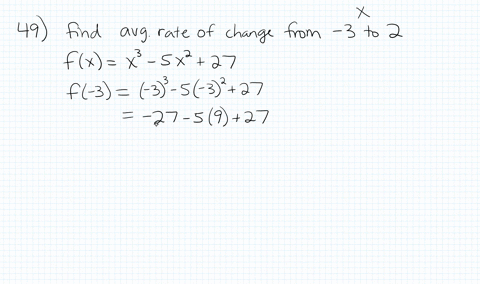 x
49) find avg. rate of change from -3 to 2
f(x) = x³ - 5x² + 27
f(-3) = (-3)³ - 5(-3)² + 27
= -27 - 5(9) + 27